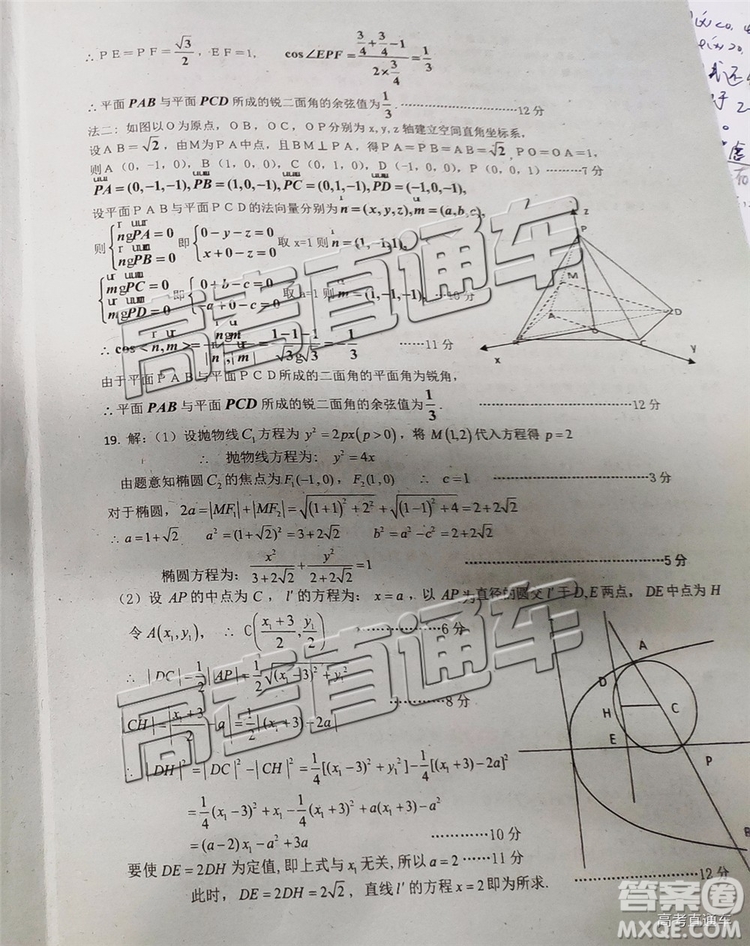 ∴PE=PF=√3/2, EF=1, cos∠EPF=(3/4+3/4-1)/(2×3/4)=1/3
∴平面PAB与平面PCD所成的锐二面角的余弦值为1/3. ················12分
法二：如图以O为原点，OB，OC，OP分别为x,y,z轴建立空间直角坐标系.
设AB=√2，由M为PA中点，且BM⊥PA，得PA=PB=AB=√2, PO=OA=1,
则A（0，-1，0），B（1，0，0），C（0，1，0），D（-1，0，0），P（0，0，1）------7分
PA=(0,-1,-1),PB=(1,0,-1),PC=(0,1,-1),PD=(-1,0,-1),
设平面PAB与平面PCD的法向量分别为n=(x,y,z),m=(a,b,c),
则{ngPA=0 ngPB=0 即{0-y-z=0 x+0-z=0 取x=1则n=(1,-1,1),
{mgPC=0 mgPD=0 即{0+b-c=0 -a+0-c=0 取a=1则m=(1,-1,-1), ···10分
∴cos<n,m>=ngm/|n||m|=(1-1-1... )/√3g√3=-1/3 ········11分
由于平面PAB与平面PCD所成的二面角的平面角为锐角，
∴平面PAB与平面PCD所成的锐二面角的余弦值为1/3. ················12分
z
P
M
A
D
C
x
y
19. 解：（1）设抛物线C₁方程为y²=2px(p>0)，将M(1,2)代入方程得p=2
∴ 抛物线方程为：y²=4x
由题意知椭圆C₂的焦点为F₁(-1,0)，F₂(1,0) ∴ c=1 ················3分
对于椭圆，2a=|MF₁|+|MF₂|=√((1+1)²+2²)+√((1-1)²+4)=2+2√2
∴a=1+√2 a²=(1+√2)²=3+2√2 b²=a²-c²=2+2√2
椭圆方程为：x²/(3+2√2)+y²/(2+2√2)=1 ················5分
（2）设AP的中点为C，l'的方程为：x=a，以AP为直径的圆交l'于D,E两点，DE中点为H
令A(x₁,y₁)，∴ C((x₁+3)/2,y₁/2) ············6分
∴ |DC|=1/2|AP|=1/2√((x₁-3)²+y₁²)
|CH|=|(x₁+3)/2-a|=1/2|(x₁+3)-2a| ············8分
∴ |DH|²=|DC|²-|CH|²=1/4[(x₁-3)²+y₁²]-1/4[(x₁+3)-2a]²
=1/4(x₁-3)²+x₁-1/4(x₁+3)²+a(x₁+3)-a²
=(a-2)x₁-a²+3a ············10分
要使DE=2DH为定值,即上式与x₁无关,所以a=2 ······11分
此时，DE=2DH=2√2，直线l'的方程x=2即为所求. ················12分
A
D
H
C
E
P
B
高考直通车
高考直通车
答案圈
MXQE.COM
高考直通车